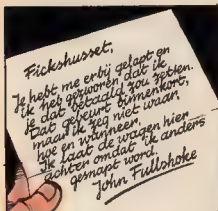 Fickshusset,
Je hebt me erbij gelapt en
ik heb gezworen dat ik
je dat betaald zou zetten.
Dat gebeurt binnenkort,
maar ik zeg niet waar,
hoe en wanneer.
Ik laat de wagen hier
achter omdat ik anders
gesnapt word.
John Fullshoke